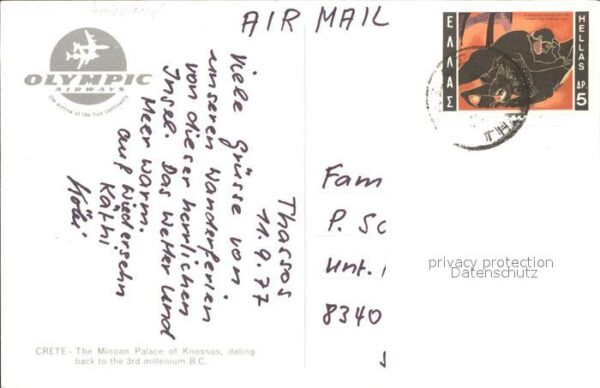 AIR MAIL
OLYMPIC
AIRWAYS
the airline of the five continents
Thassos
11.9.77
Viele Grüsse von
unseren Wanderferien
von dieser herrlichen
Insel. Das Wetter und
Meer warm.
auf Wiedersehn
Käthi
CRETE - The Minoan Palace of Knossos, dating
back to the 3rd millenium B.C.
ΕΛΛΑΣ
HELLAS
ΔΡ. 5
Fam
P. Sc
Unt.
8340
privacy protection
Datenschutz